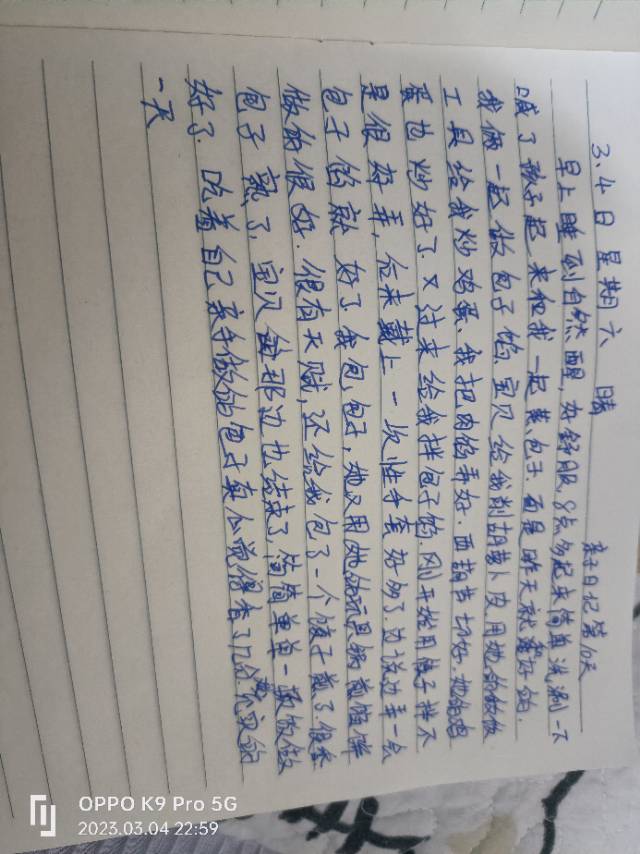 亲子日记第10天
3.4日 星期六 晴
早上睡到自然醒,好舒服,8点多起床简单洗涮一下
喊了孩子起来和我一起蒸包子.面是昨天就醒好的.
我俩一起做包子馅.宝贝给我削胡萝卜皮用她的做饭
工具给我炒鸡蛋、我把肉馅弄好.西葫芦切好.她的鸡
蛋也炒好了.又过来给我拌包子馅.刚开始用筷子拌不
是很好弄,后来戴上一次性手套好多了.边说边弄一会
包子馅就好了我包包子,她又用她的玩具锅煎馅饼
做的很好.很有天赋,还给我包了一个饺子煎了.很香
包子熟了,宝贝她那边也结束了简简单单一顿饭做
好了.吃着自己亲手做的包子真心觉得香了几分.充实的
一天
OPPO K9 Pro 5G
2023.03.04 22:59